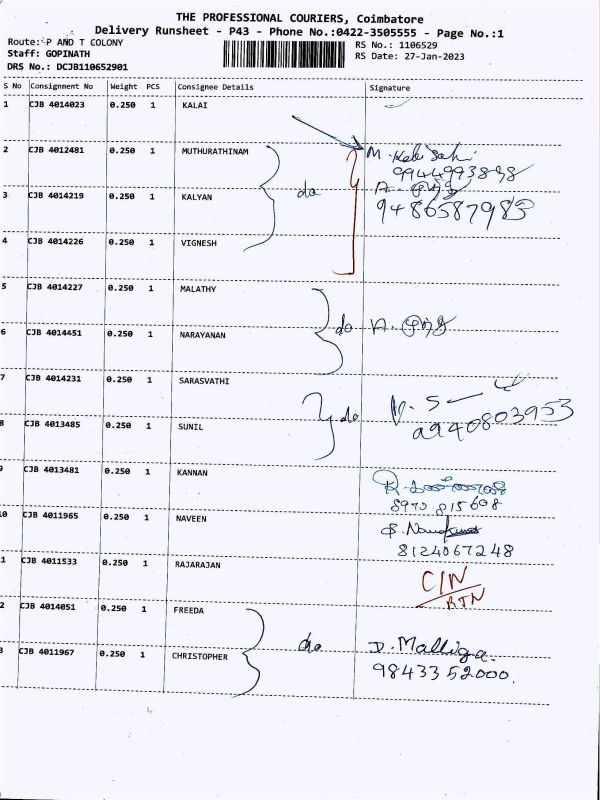 THE PROFESSIONAL COURIERS, Coimbatore
Delivery Runsheet - P43 - Phone No.:0422-3505555 - Page No.:1
Route: P AND T COLONY
Staff: GOPINATH
DRS No.: DCJB110652901
RS No.: 1106529
RS Date: 27-Jan-2023
S No Consignment No Weight PCS Consignee Details Signature
1 CJB 4014023 0.250 1 KALAI
2 CJB 4012481 0.250 1 MUTHURATHINAM
3 CJB 4014219 0.250 1 KALYAN do
9486587983
4 CJB 4014226 0.250 1 VIGNESH
5 CJB 4014227 0.250 1 MALATHY
6 CJB 4014451 0.250 1 NARAYANAN do
7 CJB 4014231 0.250 1 SARASVATHI
8 CJB 4013485 0.250 1 SUNIL do
9940803953
9 CJB 4013481 0.250 1 KANNAN
8973 815608
0 CJB 4011965 0.250 1 NAVEEN
8124067248
1 CJB 4011533 0.250 1 RAJARAJAN
CIN
RTN
2 CJB 4014051 0.250 1 FREEDA
3 CJB 4011967 0.250 1 CHRISTOPHER do D. Malliga
98433 52000.